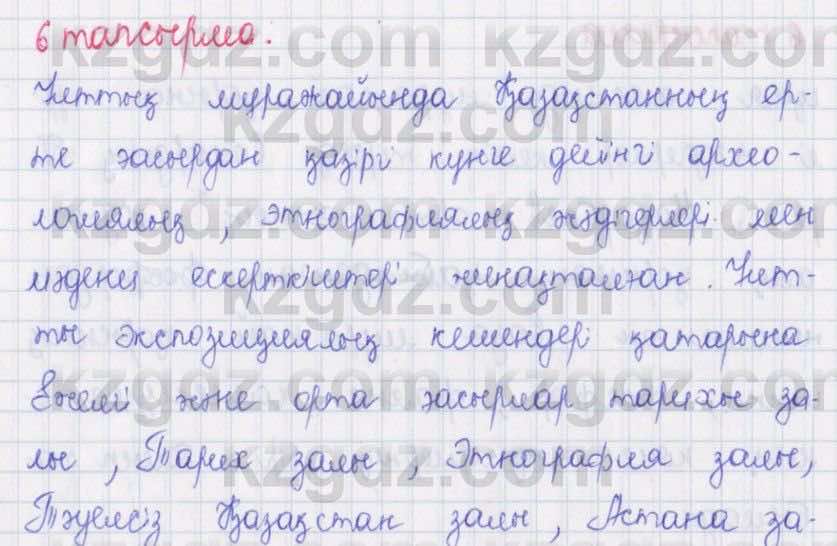 6 тапсырма.
Ұлттық мұражайында Қазақстанның ер-
те ғасырдан қазіргі күнге дейінгі архео-
логиялық, этнографиялық жәдігерлері мен
мәдени ескерткіштері жинақталған. Ұлт-
тық экспозициялық кешендері қатарына
Ежелгі және орта ғасырлар тарихы за-
лы, Тарих залы, Этнография залы,
Тәуелсіз Қазақстан залы, Астана за-
kzgdz.com